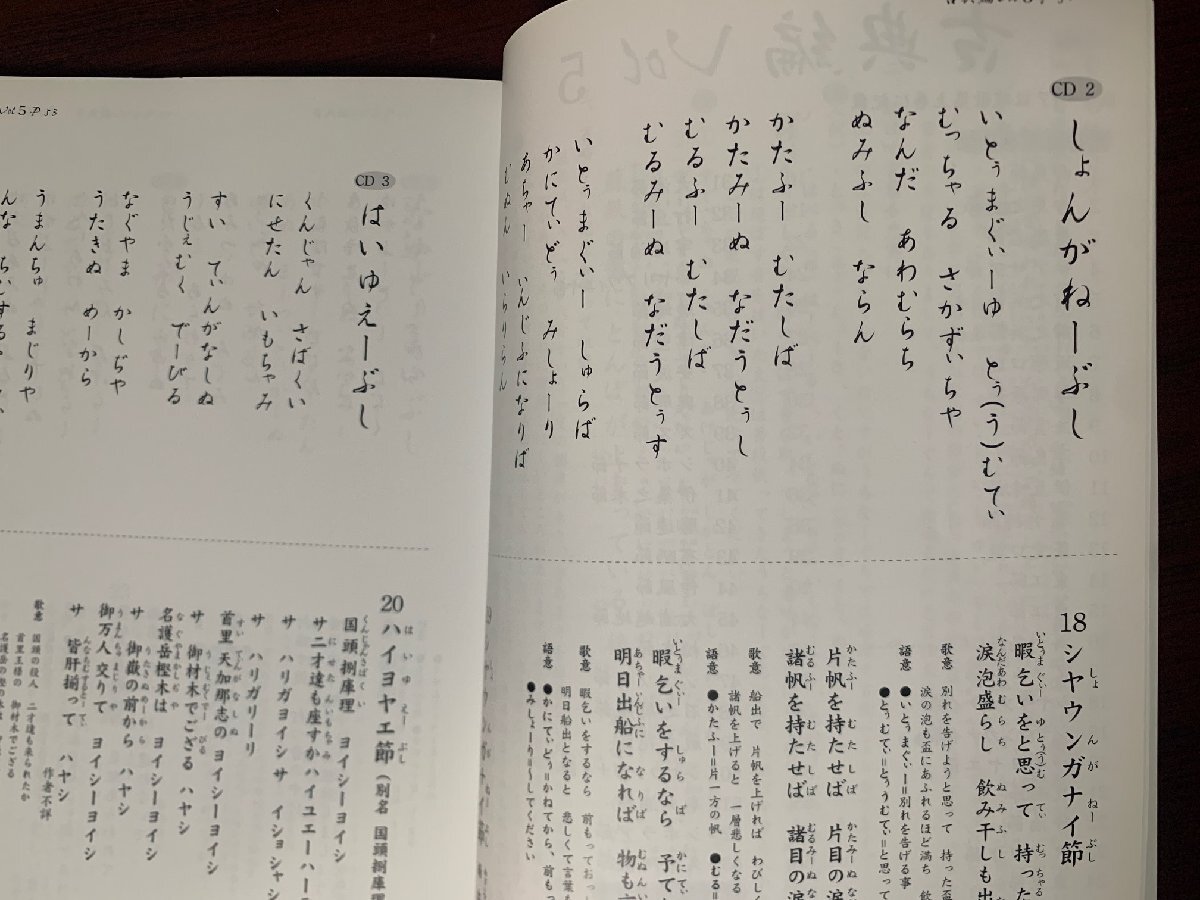 CD 2
しょんがねーぶし
いとぅまぐぃーゆ とぅ(う)むてぃ
むっちゃる さかずぃちゃ
なんだ あわむらち
ぬみふし ならん
かたふー むたしば
かたみーぬ なだうとぅし
むるふー むたしば
むるみーぬ なだうとぅす
いとぅまぐぃー しゅらば
かにてぃどぅ みしょーり
あちゃー いんじふになりば
むぬん いらりらん
18 シヤウンガナイ節
しょんがねーぶし
暇乞いをと思って 持った
涙泡盛らし 飲み干しも出
歌意 別れを告げようと思って 持った盃
涙の泡も盃にあふれるほど満ち 飲
語意 ●いとぅまぐぃー=別れを告げる事
●とぅむてぃ=とぅうむてぃ=と思って
片帆を持たせば 片目の涙
諸帆を持たせば 諸目の涙
歌意 船出で 片帆を上げれば わびしく
諸帆を上げると 一層悲しくなる
語意 ●かたふー=片一方の帆 ●むる=
暇乞いをするなら 予て
明日出船になれば 物も
歌意 暇乞いをするなら 前もっておっし
明日船出となると 悲しくて言葉も
語意 ●かにてぃどぅ=かねてから、前もっ
●みしょーり=〜してください
Vol 5 P 53
CD 3
はいゆえーぶし
くんじゃん さばくい
にせたん いもちゃみ
すい てぃんがなしぬ
うじぇむく でーびる
なぐやま かしぢや
うたきぬ めーから
うまんちゅ まじりや
20 ハイヨヤエ節 (別名 国頭捌庫理
はいゆえーぶし
国頭捌庫理 ヨイシーヨイシ
サ二才達も座すか ハイユエーハー
サ ハリガヨイシ サ イショシャシ
サ ハリガリーリ
首里天加那志の ヨイシーヨイシ
サ 御材木でござる ハヤシ
名護岳樫木は ヨイシーヨイシ
サ 御嶽の前から ハヤシ
御万人交りて ヨイシーヨイシ
サ 皆肝揃って ハヤシ
作者不詳
歌意 国頭の役人 二才達も来られたか
首里王様の 御材木でござる